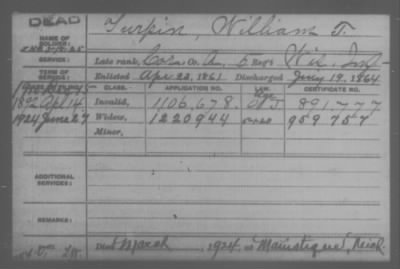 DEAD
NAME OF SOLDIER:
Turpin, William T.
SERVICE:
Late rank, Corp. Co. A, 5 Reg't Wis. Inf.
TERM OF SERVICE:
Enlisted Apr. 22, 1861. Discharged July 19, 1864
CLASS. APPLICATION NO. LAW. CERTIFICATE NO.
1892 Apl 14 Invalid, 1106,678. 891777
1924 June 27 Widow, 1220944 959757
Minor,
ADDITIONAL SERVICES:
REMARKS:
Died March, 1924, at Manistique, Mich.